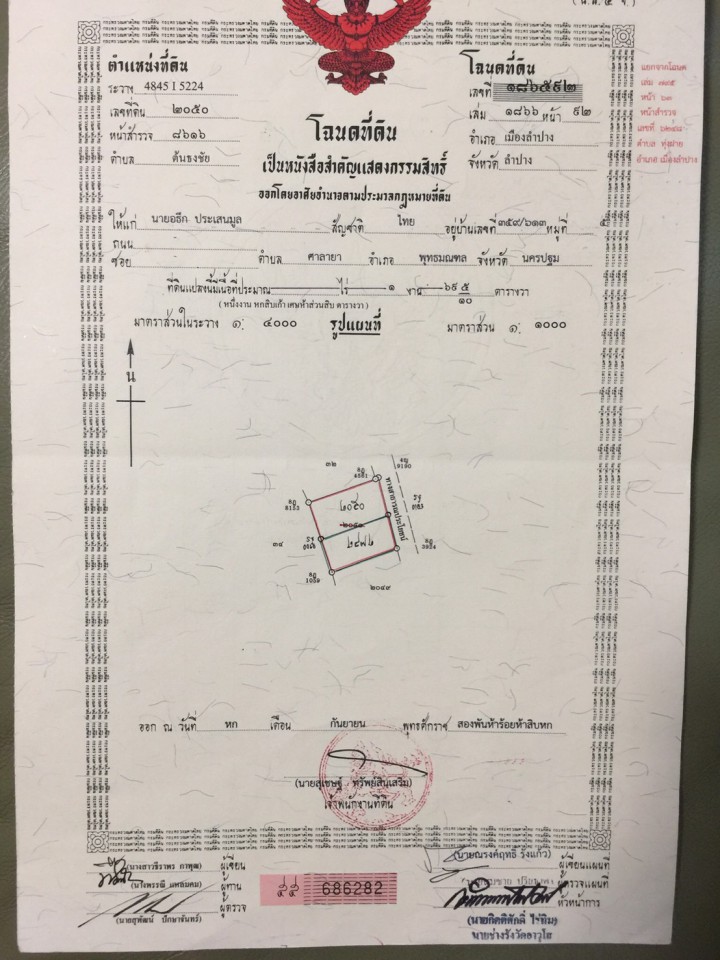 (น.ส. ๔ จ.)
ตำแหน่งที่ดิน
ระวาง 4845 I 5224
เลขที่ดิน ๒๐๕๐
หน้าสำรวจ ๘๖๑๖
ตำบล ต้นธงชัย
โฉนดที่ดิน
เลขที่ ๑๘๖๕๙๒
เล่ม ๑๘๖๖ หน้า ๙๒
อำเภอ เมืองลำปาง
จังหวัด ลำปาง
แยกจากโฉนด
หน้าสำรวจ
ตำบล ทุ่งฝาย
อำเภอ เมืองลำปาง
โฉนดที่ดิน
เป็นหนังสือสำคัญแสดงกรรมสิทธิ์
ออกโดยอาศัยอำนาจตามประมวลกฎหมายที่ดิน
ให้แก่ นายอธึก ประเสนมูล สัญชาติ ไทย อยู่บ้านเลขที่ ๓๕๙/๖๑๓ หมู่ที่ ๕
ถนน
ซอย - ตำบล ศาลายา อำเภอ พุทธมณฑล จังหวัด นครปฐม
ที่ดินแปลงนี้มีเนื้อที่ประมาณ - ไร่ ๑ งาน ๖๙ ๕/๑๐ ตารางวา
( หนึ่งงาน หกสิบเก้า เศษห้าส่วนสิบ ตารางวา )
มาตราส่วนในระวาง ๑: ๔๐๐๐ รูปแผนที่ มาตราส่วน ๑: ๑๐๐๐
น
๓๒
๒๐๕๐
๒๐๕๐
ทางสาธารณประโยชน์
๓๔
๒๐๔๙
ออก ณ วันที่ หก เดือน กันยายน พุทธศักราช สองพันห้าร้อยห้าสิบหก
(นายสุเชษฐ์ ทรัพย์สินเสริม)
เจ้าพนักงานที่ดิน
ผู้เขียน
ผู้ทาน
ผู้ตรวจ
(นายสุพัฒน์ ปักษาจันทร์)
686282
(นายณรงค์ฤทธิ์ รุ่งแก้ว) ผู้เขียนแผนที่
ผู้ตรวจแผนที่
หัวหน้าการ
(นายกิตติศักดิ์ ไร่ทิม)
นายช่างรังวัดอาวุโส